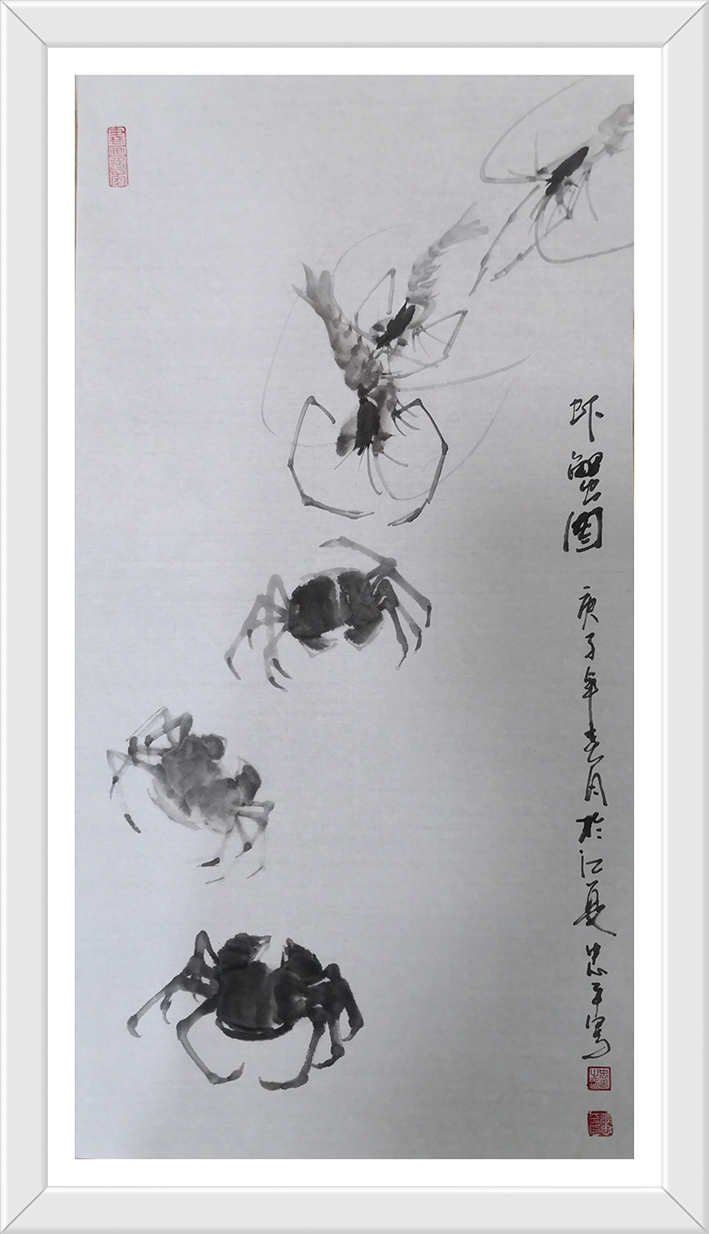 虾蟹图
庚子年春月於江夏忠平写